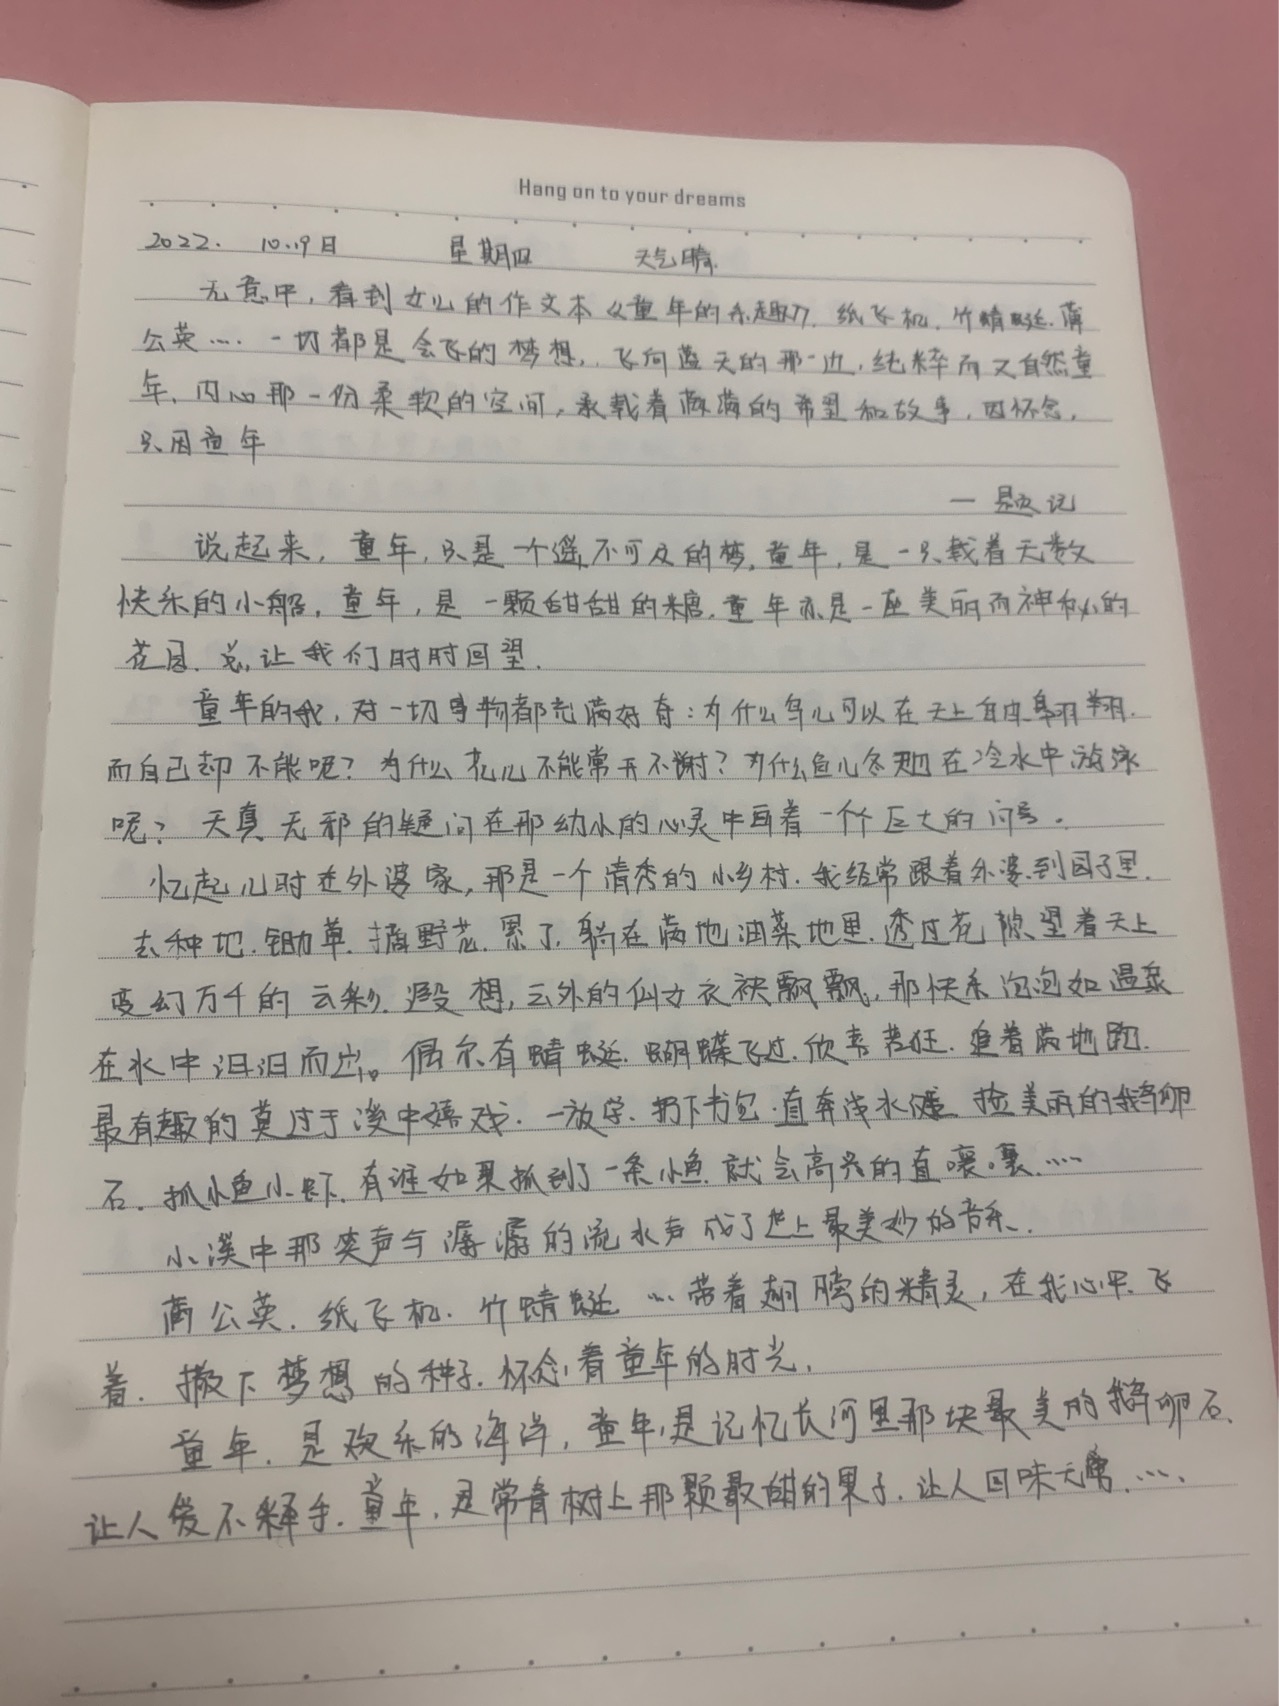 Hang on to your dreams
2022. 10.19日 星期四 天气晴.
无意中,看到女儿的作文本《童年的乐趣》.纸飞机.竹蜻蜓.蒲
公英.... 一切都是会飞的梦想,飞向蓝天的那一边,纯粹而又自然童
年.内心那一份柔软的空间,承载着满满的希望和故事.因怀念,
只因童年
— 题记
说起来,童年,只是一个遥不可及的梦.童年,是一只载着无数
快乐的小船,童年,是一颗甜甜的糖.童年亦是一座美丽而神秘的
花园.总让我们时时回望.
童年的我,对一切事物都充满好奇:为什么鸟儿可以在天上自由翱翔.
而自己却不能呢?为什么花儿不能常开不谢?为什么鱼儿冬期在冷水中游泳
呢?天真无邪的疑问在那幼小的心灵中画着一个个巨大的问号.
忆起儿时在外婆家,那是一个清秀的小乡村.我经常跟着外婆到园子里.
去种地.锄草.摘野花.累了.躺在满地油菜地里.透过花隙望着天上
变幻万千的云彩.遐想,云外的仙女衣袂飘飘,那快乐泡泡如温泉
在水中汩汩而出。偶尔有蜻蜓.蝴蝶飞过.欣喜若狂.追着满地跑.
最有趣的莫过于溪中嬉戏.一放学.扔下书包.直奔浅水滩.捡美丽的鹅卵
石.抓小鱼小虾.有谁如果抓到了一条小鱼.就会高兴的直嚷嚷....
小溪中那笑声与潺潺的流水声成了世上最美妙的音乐.
蒲公英.纸飞机.竹蜻蜓...带着翅膀的精灵,在我心中飞
着.撒下梦想的种子.怀念着童年的时光.
童年.是欢乐的海洋,童年,是记忆长河里那块最美的鹅卵石.
让人爱不释手.童年,是常青树上那颗最甜的果子.让人回味无穷....